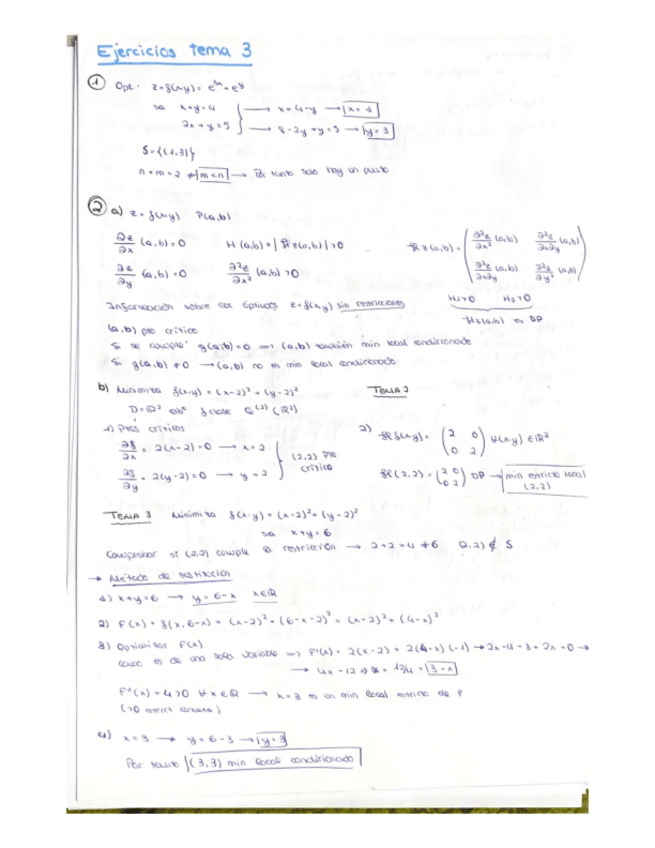 Ejercicios tema 3
① Opt. z=f(x,y)= e³ˣ+eʸ
sa x+y=4 → x=4-y → x=1
2x+y=5 → 8-2y+y=5 → y=3
S={(1,3)}
n=m=2 → Por tanto solo hay un punto
② a) z=f(x,y) P(a,b)
∂z/∂x (a,b)=0 H(a,b)=|ℋz(a,b)|>0 ℋz(a,b)= ( ∂²z/∂x² (a,b) ∂²z/∂x∂y (a,b)
∂z/∂y (a,b)=0 ∂²z/∂x² (a,b)>0 ∂²z/∂x∂y (a,b) ∂²z/∂y² (a,b) )
Información sobre los óptimos z=f(x,y) sin restricciones H₁>0 H₂>0
(a,b) pto crítico ℋz(a,b) es DP
Si se cumple g(a,b)=0 ⇒ (a,b) también min local condicionado
Si g(a,b)≠0 → (a,b) no es min local condicionado
b) Minimiza f(x,y) = (x-2)²+(y-2)² TEMA 2
D=ℝ² f clase (ℝ²)
1) Ptos críticos 2) ℋf(x,y)= (2 0 0 2) ∀(x,y)∈ℝ²
∂f/∂x = 2(x-2)=0 → x=2 (2,2) pto crítico
∂f/∂y = 2(y-2)=0 → y=2 ℋf(2,2)= (2 0 0 2) DP → min estricto local (2,2)
TEMA 3 Minimiza f(x,y) = (x-2)²+(y-2)²
sa x+y=6
Comprobar si (2,2) cumple la restricción → 2+2=4≠6 (2,2)∉S
→ Método de sustitución
1) x+y=6 → y=6-x x∈ℝ
2) F(x) = f(x,6-x) = (x-2)²+(6-x-2)² = (x-2)²+(4-x)²
3) Optimizar F(x)
como es de una sola variable ⇒ F'(x) = 2(x-2) + 2(4-x)(-1) → 2x-4-8+2x=0 →
→ 4x-12 ⇒ x=12/4 = 3=x
F''(x)=4>0 ∀x∈ℝ → x=3 es un min local estricto de F
(>0 estrict convexa)
4) x=3 → y=6-3 → y=3
Por tanto (3,3) min local condicionado